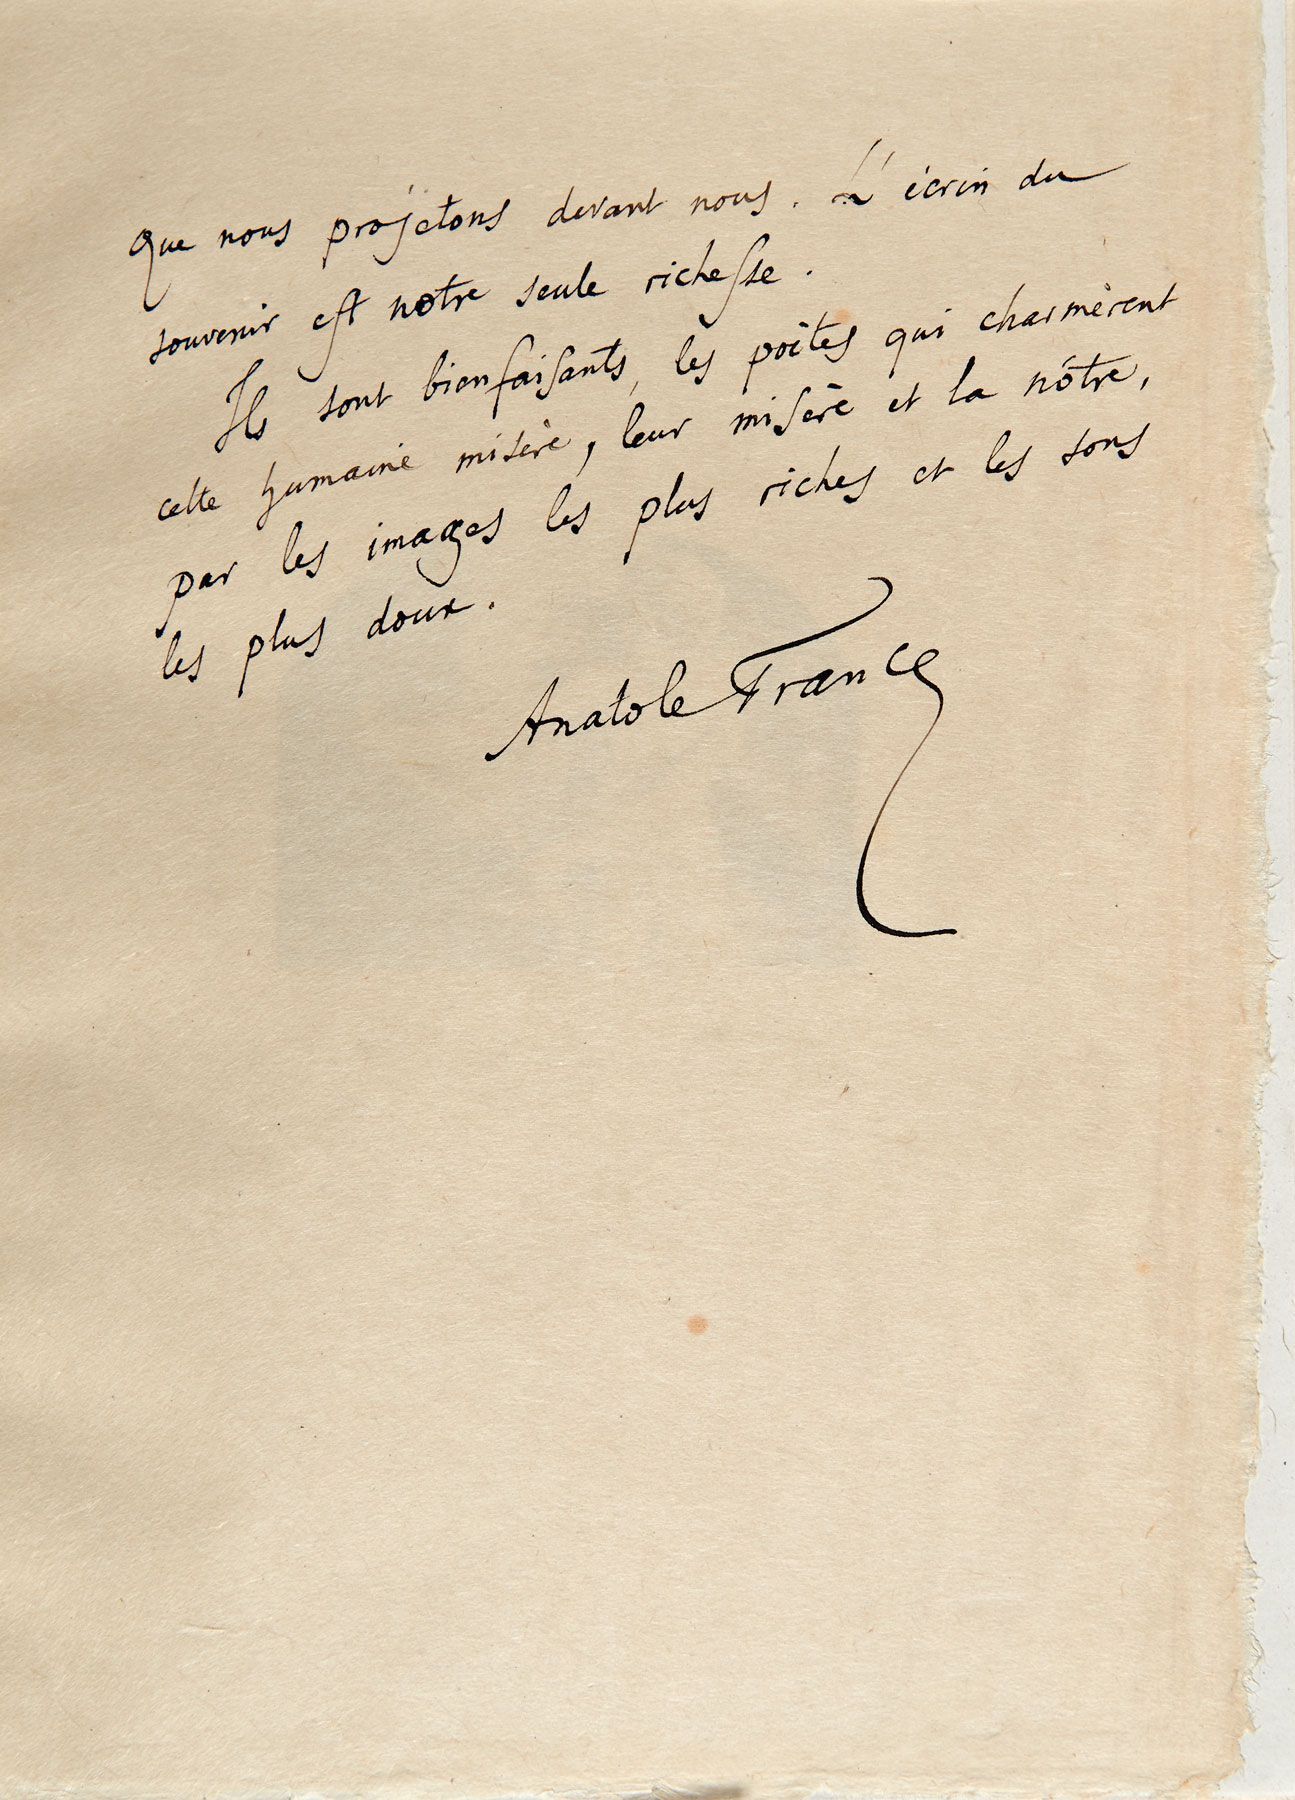 que nous projetons devant nous. L'écrin du
souvenir est notre seule richesse.
Ils sont bienfaisants, les poètes qui charmèrent
cette humaine misère, leur misère et la nôtre,
par les images les plus riches et les sons
les plus doux.
Anatole France